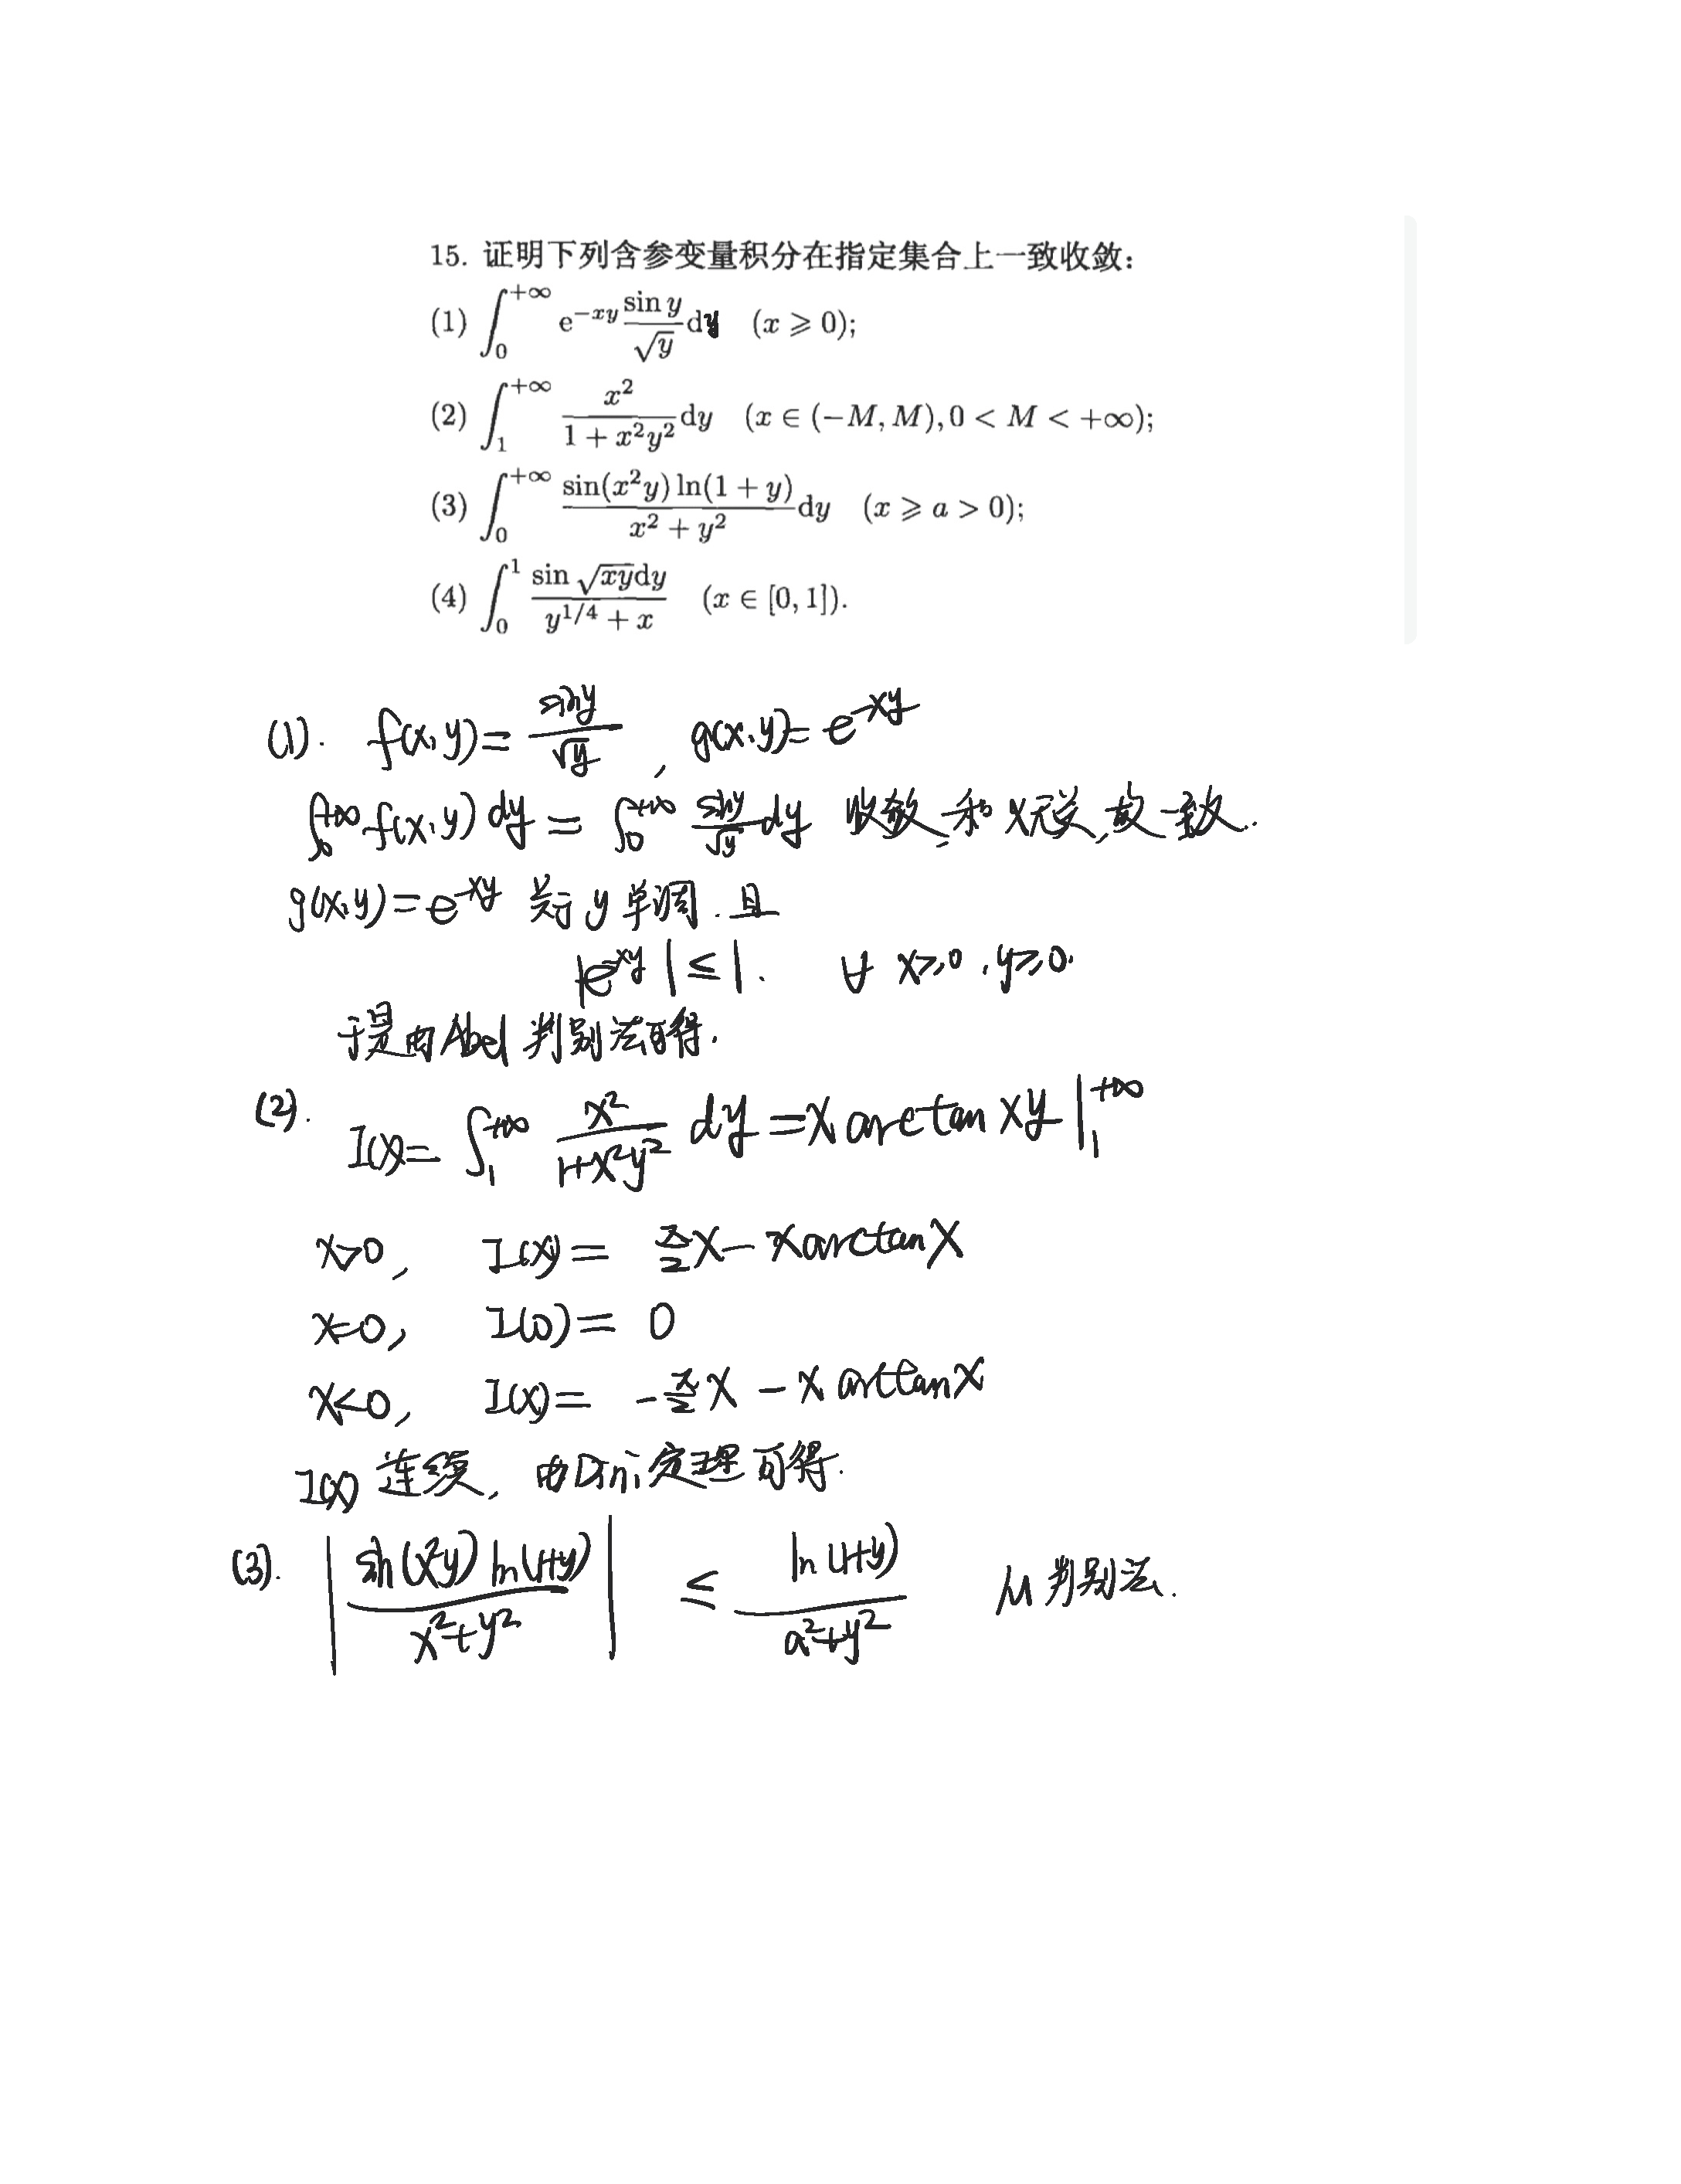 15. 证明下列含参变量积分在指定集合上一致收敛:
(1) ∫_0^{+∞} e^{-xy} \frac{sin y}{√y} dy (x ⩾ 0);
(2) ∫_1^{+∞} \frac{x^2}{1+x^2y^2} dy (x ∈ (-M, M), 0 < M < +∞);
(3) ∫_0^{+∞} \frac{sin(x^2y) ln(1+y)}{x^2+y^2} dy (x ⩾ a > 0);
(4) ∫_0^1 \frac{sin √{xy} dy}{y^{1/4}+x} (x ∈ [0, 1]).
(1). f(x,y) = \frac{sin y}{√y}, g(x,y) = e^{-xy}
∫_0^{+∞} f(x,y) dy = ∫_0^{+∞} \frac{sin y}{√y} dy 收敛,和 x 无关,故一致.
g(x,y) = e^{-xy} 关于 y 单调. 且
|e^{-xy}| ≤ 1. ∀ x⩾0, y⩾0.
于是由 Abel 判别法可得.
(2). I(x) = ∫_1^{+∞} \frac{x^2}{1+x^2y^2} dy = x arctan xy |_1^{+∞}
x>0, I(x) = \frac{π}{2}x - x arctan x
x=0, I(0) = 0
x<0, I(x) = -\frac{π}{2}x - x arctan x
I(x) 连续, 由 Dini 定理可得.
(3). |\frac{sin(x^2y) ln(1+y)}{x^2+y^2}| ≤ \frac{ln(1+y)}{a^2+y^2} M 判别法.